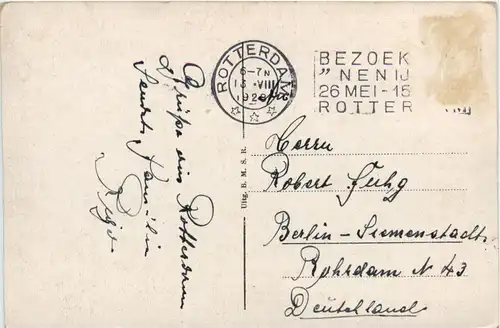 ROTTERDAM
6-7N
13 VIII
192
BEZOEK
„NENIJ
26 MEI-15
ROTTER
Grüße aus Rotterdam
Sendet Familie
Uitg. B. M. S. R.
Herrn
Robert Fuhg
Berlin-Siemenstadt
Rohrdam N 43
Deutschland